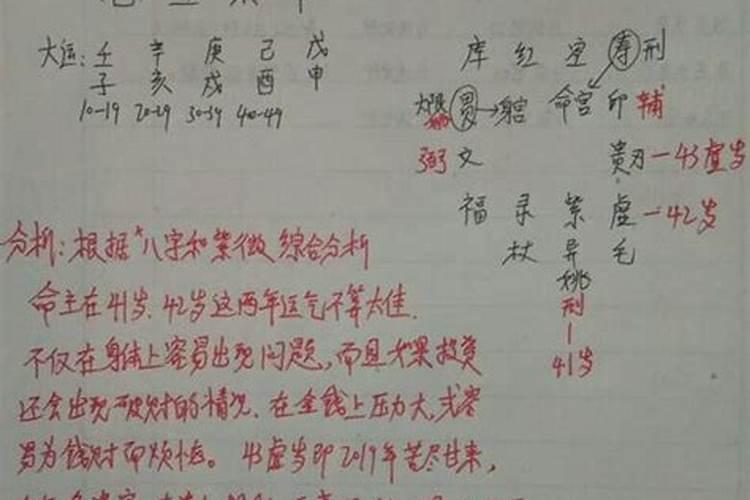 大运: 壬 辛 庚 己 戊
子 亥 戌 酉 申
10-19 20-29 30-39 40-49
库 红 空 寿 刑
大限 贯→ 身宫 命宫 印 辅
弼 文 贵刃-43虚岁
福 录 紫 虚-42岁
杖 异 毛
姚
刑
41岁
分析: 根据"八字和紫微综合分析
命主在41岁、42岁这两年运气不算太佳.
不仅在身体上容易出现问题,而且如果投资
还会出现破财的情况.在金钱上压力大,或容
易为钱财而烦恼。43虚岁即2019年苦尽甘来,